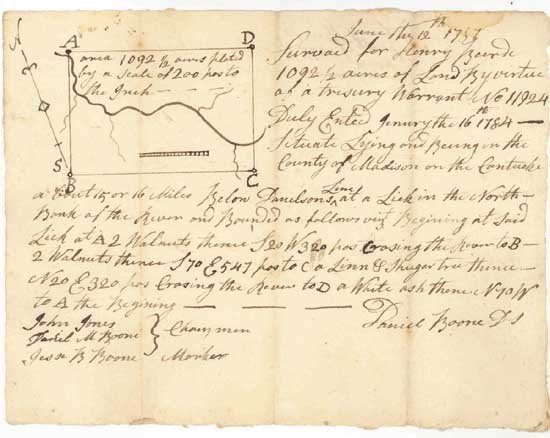 N
S
A
D
B
C
area 1092 ½ acres plated
by a Scale of 200 pos to
the Inch
June the 12th 1787
Survaid for Henry
1092 ½ acres of Land By virtue
of a tresury Warrant No 11924
Duly Ented Jenury the 16th 1784 —
Situate Lying and Beeing in the
County of Madison on the Cantucke
a bout 15 or 16 Miles Below Danelsons Line at a Lick in the North-
Bank of the River and Bounded as follows viz Begining at Said
Lick at A 2 Walnuts thence S 20 W 320 pos Crosing the River to B —
2 Walnuts thence S 70 E 547 pos to C a Linn & Shuger tree thence —
N 20 E 320 pos Crosing the River to D a White ash thence N 70 W
to A the Begining —
Daniel Boone D S
John Jones
Daniel M Boone
} Chain men
Jesse B Boone Marker